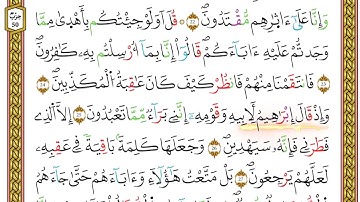 وَإِنَّا عَلَىٰٓ ءَاثَٰرِهِم مُّقْتَدُونَ ۝٢٣ ۞ قُلْ أَوَلَوْ جِئْتُكُم بِأَهْدَىٰ مِمَّا
وَجَدتُّمْ عَلَيْهِ ءَابَآءَكُمْ ۖ قَالُوٓا۟ إِنَّا بِمَآ أُرْسِلْتُم بِهِۦ كَٰفِرُونَ
۝٢٤ فَٱنتَقَمْنَا مِنْهُمْ ۖ فَٱنظُرْ كَيْفَ كَانَ عَٰقِبَةُ ٱلْمُكَذِّبِينَ ۝٢٥
وَإِذْ قَالَ إِبْرَٰهِيمُ لِأَبِيهِ وَقَوْمِهِۦٓ إِنَّنِى بَرَآءٌ مِّمَّا تَعْبُدُونَ ۝٢٦ إِلَّا ٱلَّذِى
فَطَرَنِى فَإِنَّهُۥ سَيَهْدِينِ ۝٢٧ وَجَعَلَهَا كَلِمَةًۢ بَاقِيَةً فِى عَقِبِهِۦ
لَعَلَّهُمْ يَرْجِعُونَ ۝٢٨ بَلْ مَتَّعْتُ هَٰٓؤُلَآءِ وَءَابَآءَهُمْ حَتَّىٰ جَآءَهُمُ